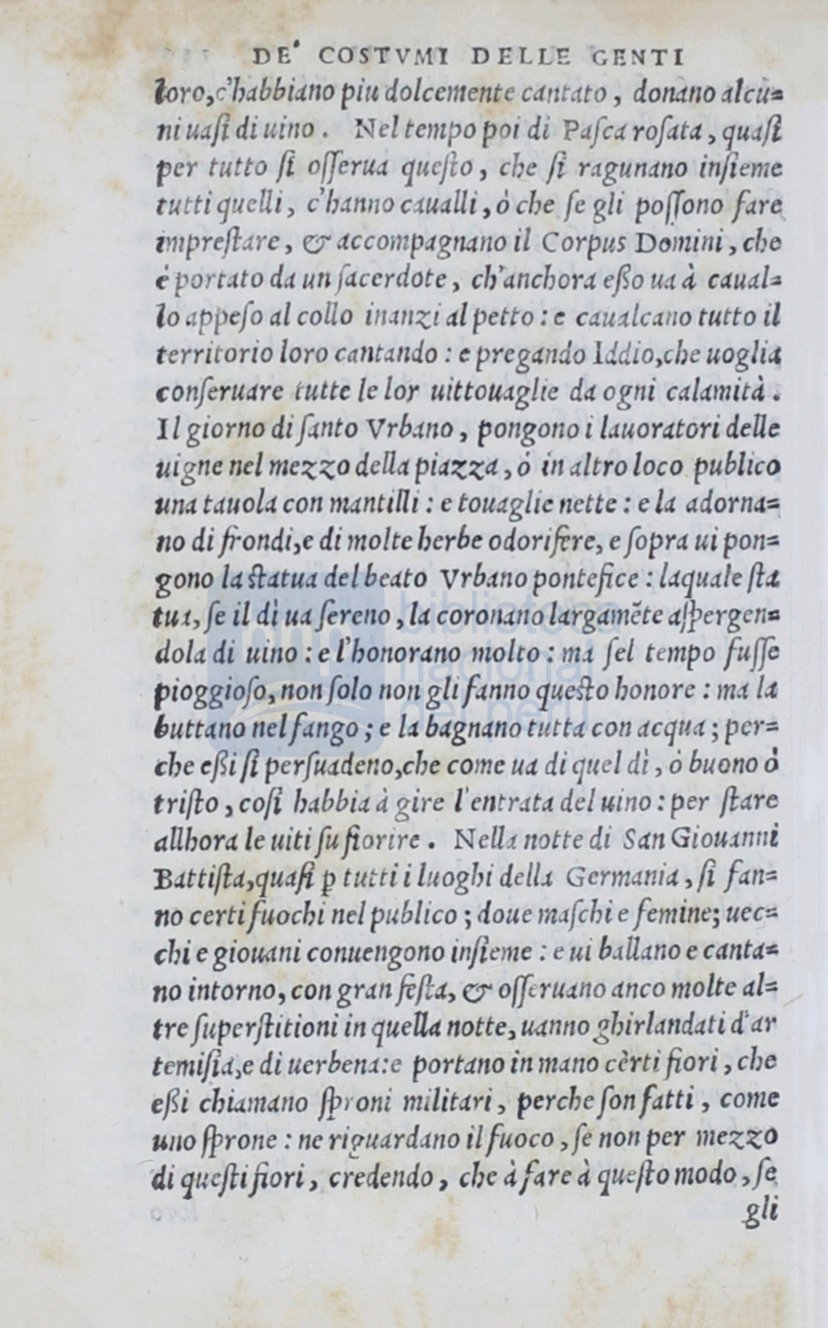 DE' COSTVMI DELLE GENTI
loro, c'habbiano piu dolcemente cantato, donano alcu=
ni uaſi di uino. Nel tempo poi di Paſca roſata, quaſi
per tutto ſi oſſerua queſto, che ſi ragunano inſieme
tutti quelli, c'hanno caualli, ò che ſe gli poſſono fare
impreſtare, & accompagnano il Corpus Domini, che
è portato da un ſacerdote, ch'anchora eßo ua à caual=
lo appeſo al collo inanzi al petto: e caualcano tutto il
territorio loro cantando: e pregando Iddio, che uoglia
conſeruare tutte le lor uittouaglie da ogni calamità.
Il giorno di ſanto Vrbano, pongono i lauoratori delle
uigne nel mezzo della piazza, ò in altro loco publico
una tauola con mantilli: e touaglie nette: e la adorna=
no di frondi, e di molte herbe odorifere, e ſopra ui pon=
gono la ſtatua del beato Vrbano pontefice: laquale ſta
tua, ſe il dì ua ſereno, la coronano largamẽte aſpergen=
dola di uino: e l'honorano molto: ma ſel tempo fuſſe
pioggioſo, non ſolo non gli fanno queſto honore: ma la
buttano nel fango; e la bagnano tutta con acqua; per=
che eßi ſi perſuadeno, che come ua di quel dì, ò buono ò
triſto, coſi habbia à gire l'entrata del uino: per ſtare
allhora le uiti ſu fiorire. Nella notte di San Giouanni
Battiſta, quaſi ꝑ tutti i luoghi della Germania, ſi fan=
no certi fuochi nel publico; doue maſchi e femine; uec=
chi e giouani conuengono inſieme: e ui ballano e canta=
no intorno, con gran feſta, & oſſeruano anco molte al=
tre ſuperſtitioni in quella notte, uanno ghirlandati d'ar
temiſia, e di uerbena: e portano in mano cèrti fiori, che
eßi chiamano ſproni militari, perche ſon fatti, come
uno ſprone: ne riguardano il fuoco, ſe non per mezzo
di queſti fiori, credendo, che à fare à queſto modo, ſe
gli
biblioteca
nacional
del perú